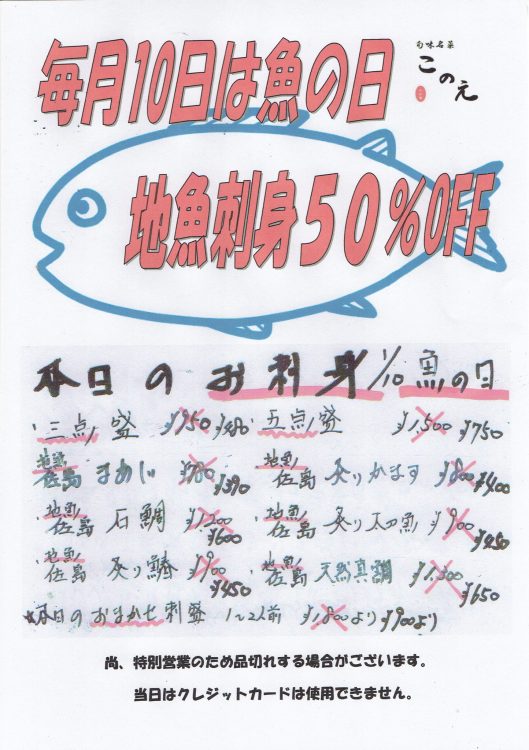 毎月10日は魚の日
旬味名菜
このえ
地魚刺身50%OFF
本日のお刺身 1/10 魚の日
三点盛 ¥950 ¥480 五点盛 ¥1,500 ¥750
地魚 佐島 まあじ ¥780 ¥390 地魚 佐島 炙りかます ¥800 ¥400
地魚 佐島 石鯛 ¥1,200 ¥600 地魚 佐島 炙り太刀魚 ¥900 ¥450
地魚 佐島 炙り鰆 ¥900 ¥450 地魚 佐島 天然真鯛 ¥1,300 ¥650
★本日のおまかせ刺盛 1〜2人前 ¥1,800より ¥900より
尚、特別営業のため品切れする場合がございます。
当日はクレジットカードは使用できません。